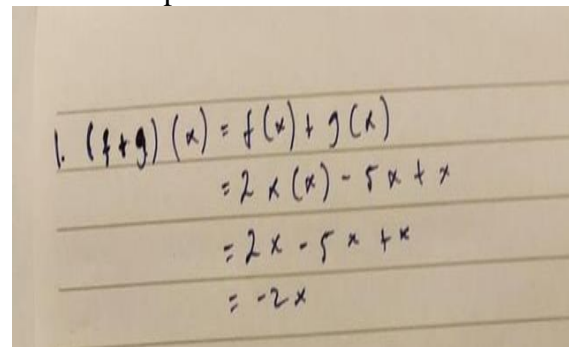 1. (f+g) (x) = f(x) + g(x)
= 2x(x) - 5x + x
= 2x - 5x + x
= -2x